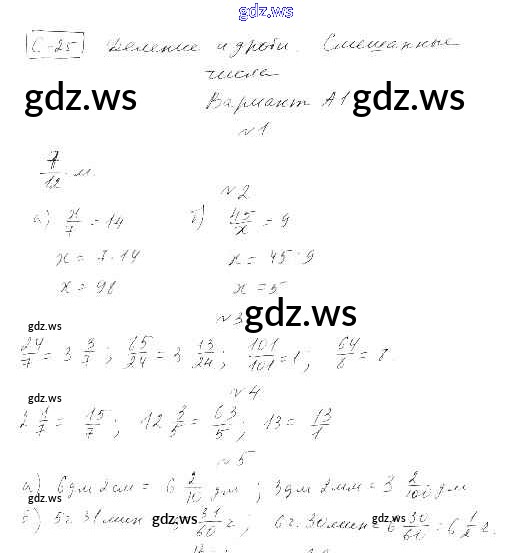 gdz.ws
С-25 Деление и дроби. Смешанные
числа
gdz.ws gdz.ws
Вариант А1
№1
7/12 м.
№2
а) x/7 = 14 б) 45/x = 9
x = 7·14 x = 45:9
x = 98 x = 5
gdz.ws
№3
gdz.ws
24/7 = 3 3/7; 85/24 = 3 13/24; 101/101 = 1; 64/8 = 8.
gdz.ws
№4
2 1/7 = 15/7; 12 3/5 = 63/5; 13 = 13/1
№5
а) 6 дм 2 см = 6 2/10 дм; 3 дм 2 мм = 3 2/100 дм
gdz.ws
б) 5 ч. 31 мин 31/60 ч; 6 ч. 30 мин = 6 30/60 = 6 1/2 ч.
gdz.ws gdz.ws